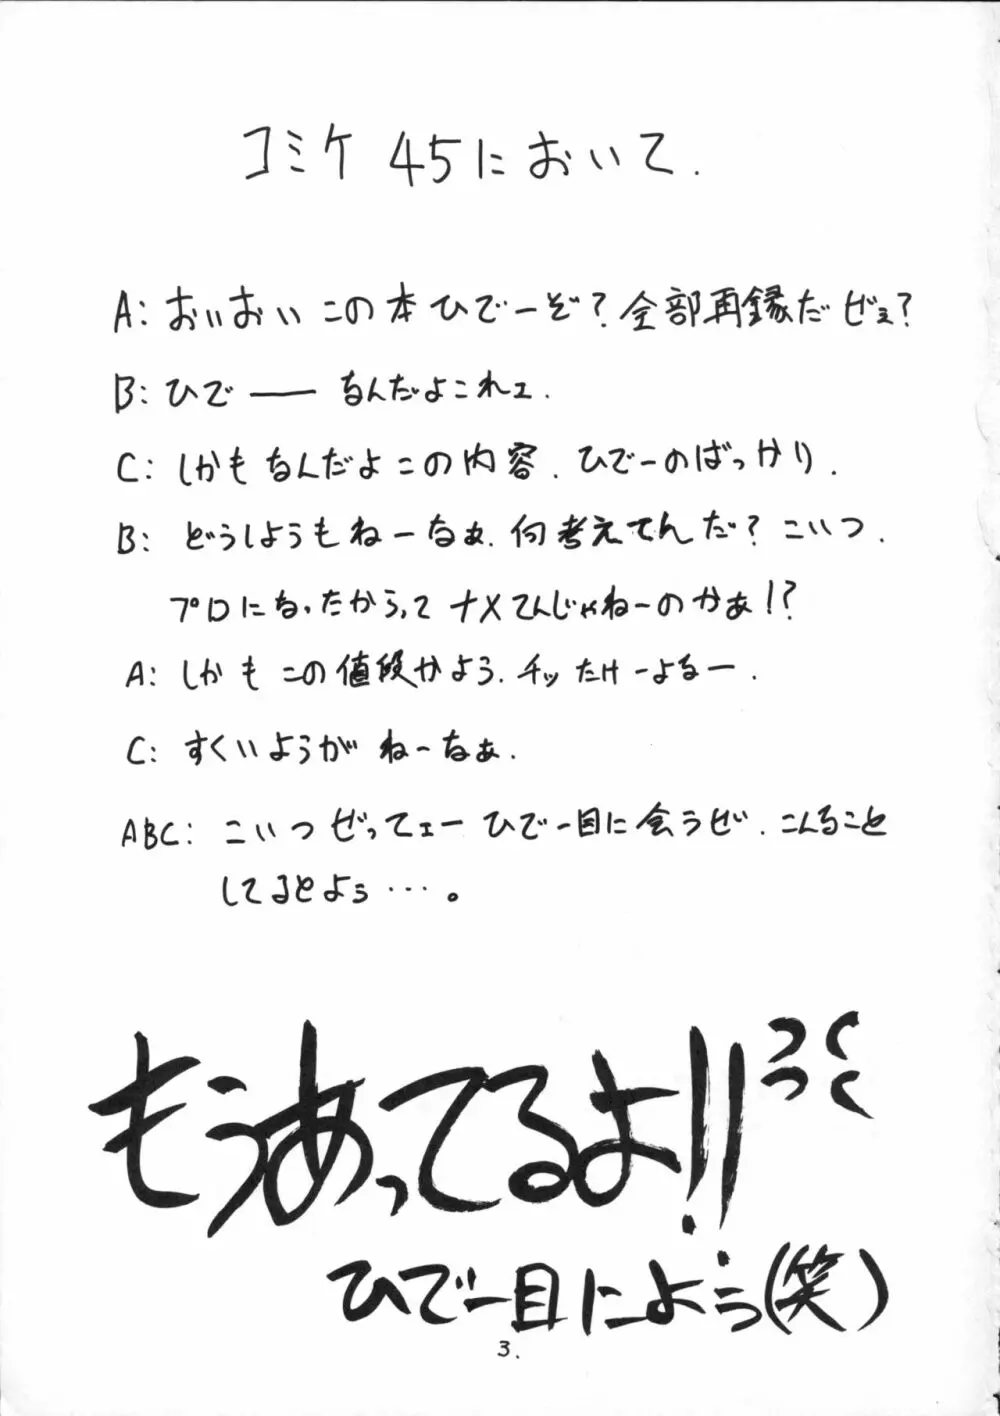 コミケ 45において.
A: おいおい この本ひでーぞ? 全部再録だぜぇ?
B: ひで―― なんだよこれェ.
C: しかもなんだよこの内容. ひでーのばっかり.
B: どうしようもねーなぁ. 何考えてんだ? こいつ.
プロになったからって ナメてんじゃねーのかぁ!?
A: しかもこの値段がよう. チッ たけーよなー.
C: すくいようがねーなぁ.
ABC: こいつぜってェー ひでー目に会うぜ. こんなこと
してるとよぅ・・・。
もうあってるよ!! うくっく
ひでー目によぅ(笑)
3.